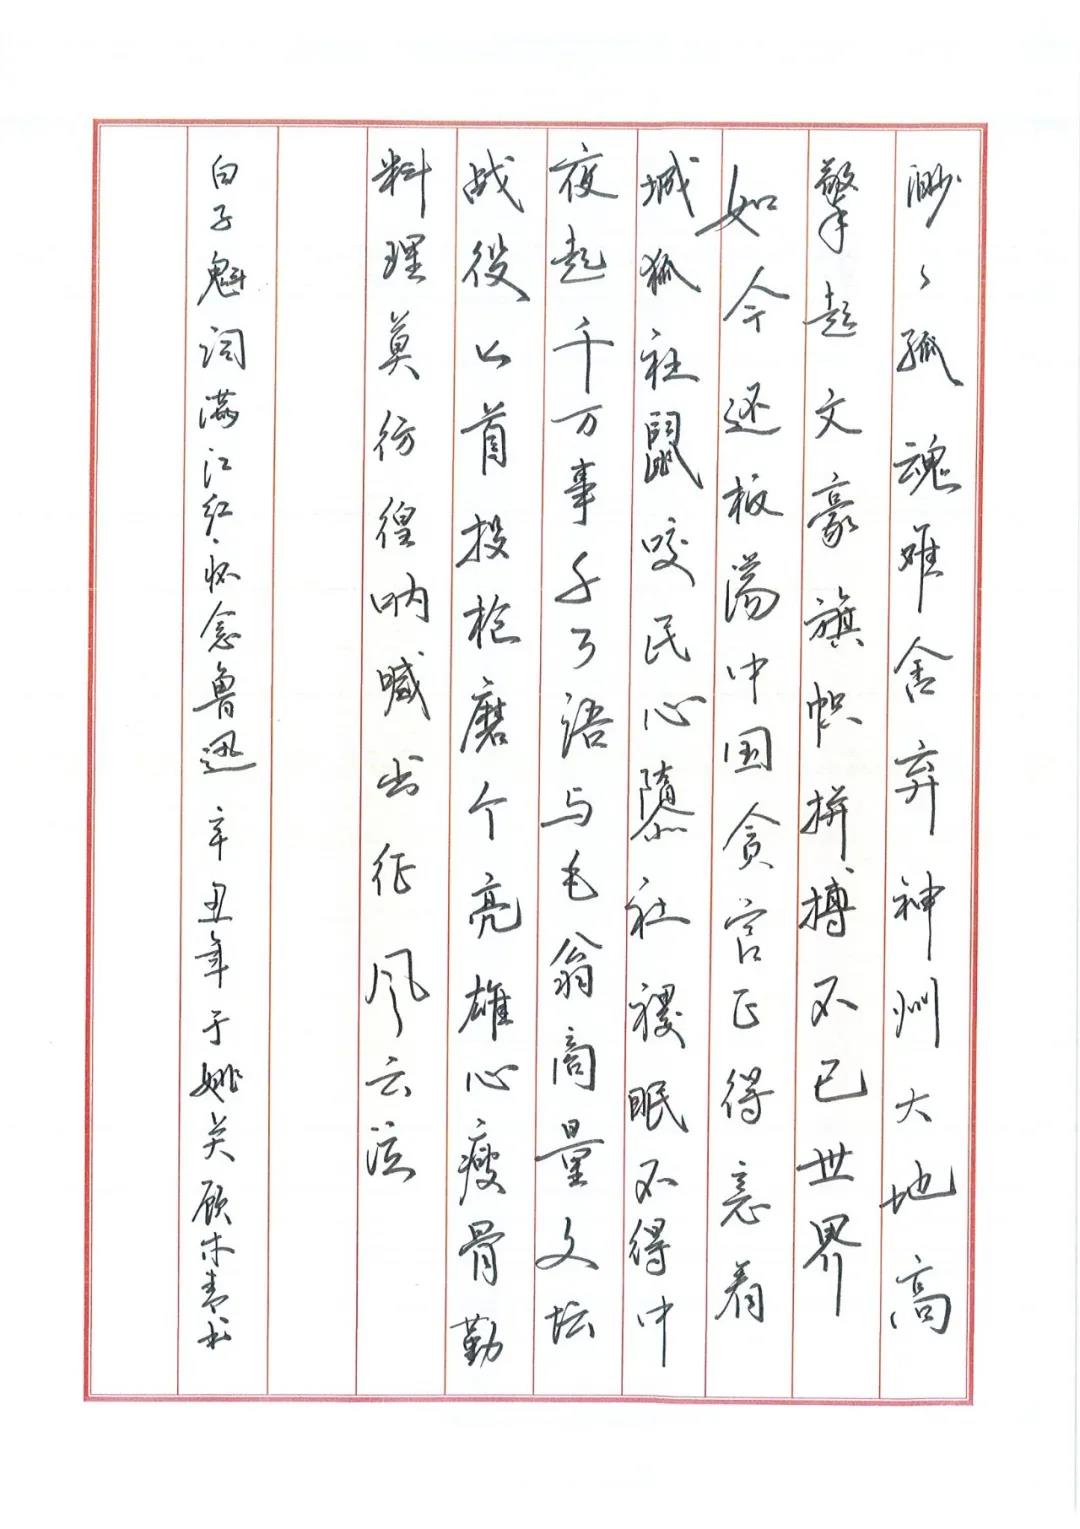 渺々孤魂难舍弃神州大地高
擎起文豪旗帜拼搏不已世界
如今还板荡中国贪官正得意看
城狐社鼠咬民心隳社稷眠不得中
夜起千万事孑了语与毛翁商量文坛
战役匕首投枪磨个亮雄心瘦骨勤
料理莫彷徨呐喊出征风云泣
白子魁词满江红·怀念鲁迅 辛丑年于姚关顾木青书